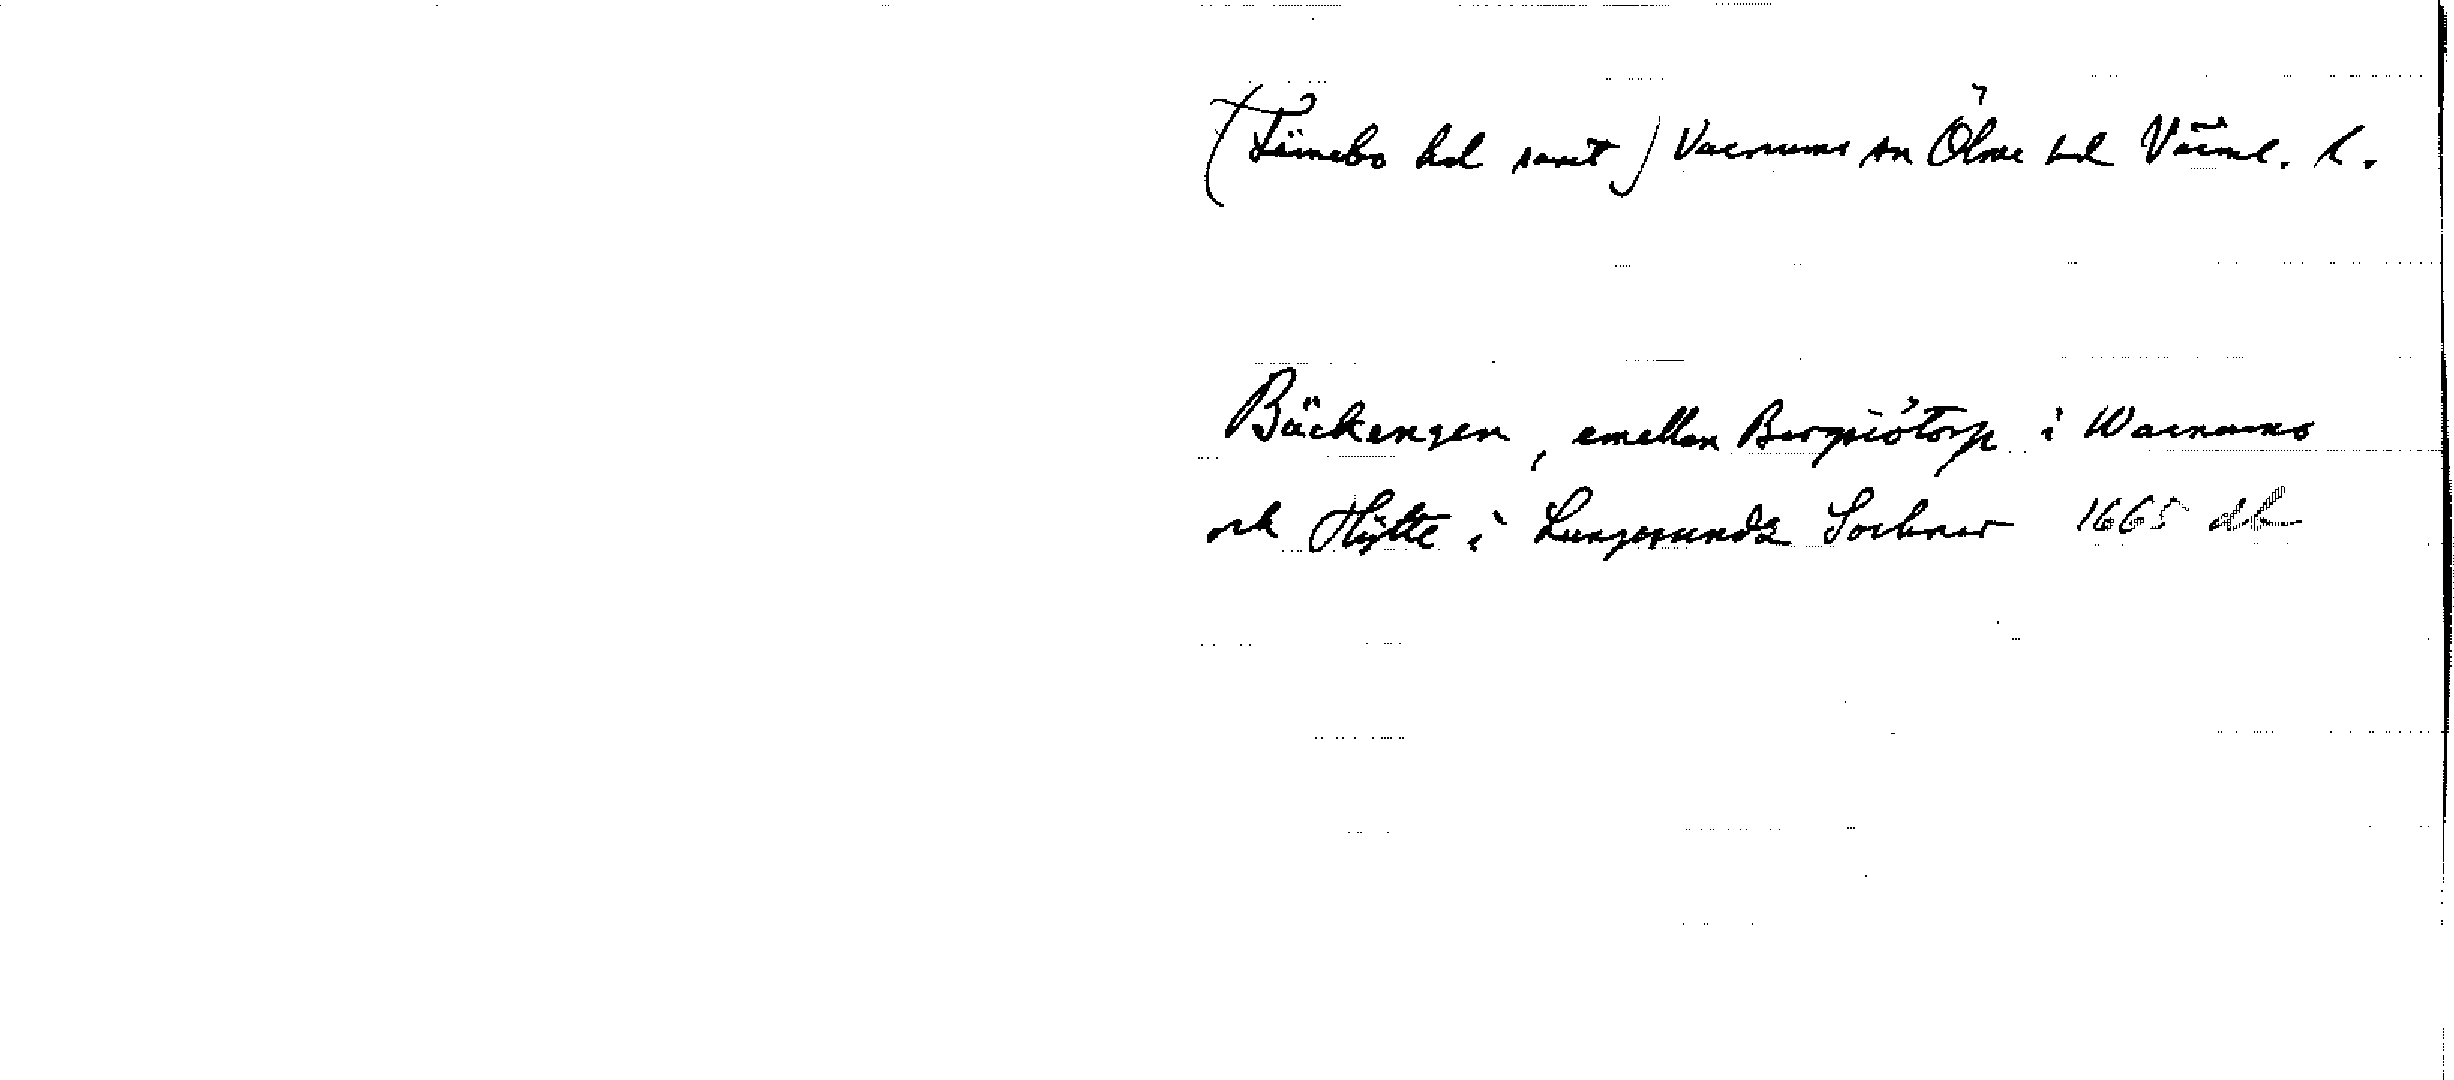 (Färnebo hd samt) Varnums sn Ölme hd Värml. l.
Bäckengen, emellan Bergsiötorp i Warnums
och Hytte i Lungesundz Sochner 1665 db